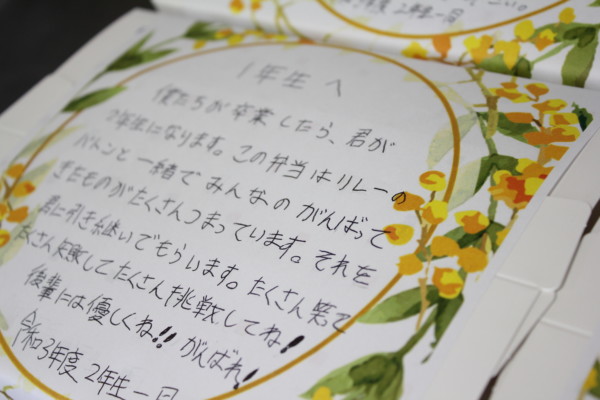 令和3年度 2年生一同
1年生へ
僕たちが卒業したら、君が
2年生になります。この弁当はリレーの
バトンと一緒でみんなのがんばって
きたものがたくさんつまっています。それを
君に引き継いでもらいます。たくさん笑って
たくさん失敗してたくさん挑戦してね!
後輩には優しくね!! がんばれ!
令和3年度 2年生一同